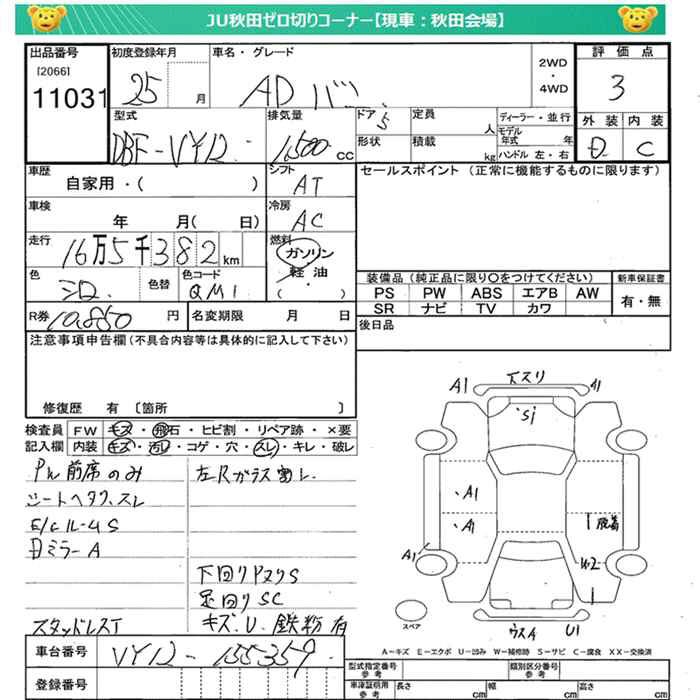 JU秋田ゼロ切りコーナー【現車：秋田会場】
出品番号
[2066]
11031
初度登録年月
25 月
車名・グレード
AD バン
2WD
・
4WD
評価点
3
外装 内装
D C
型式
DBF-VY12
排気量
1,500 cc
ドア 5
形状
定員 人
積載 kg
ディーラー・並行
モデル年式 年
ハンドル 左・右
車歴
自家用・( )
シフト
AT
セールスポイント（正常に機能するものに限ります）
車検
年 月( 日)
冷房
AC
走行
16万5千382km
燃料
ガソリン
軽油
・
( )
色
シロ
色替
色コード
QM1
R券 10,850 円
名変期限 月 日
装備品（純正品に限り○をつけてください）
PS PW ABS エアB AW
SR ナビ TV カワ
新車保証書
有・無
後日品
注意事項申告欄（不具合内容等は具体的に記入して下さい）
修復歴 有 〔箇所 〕
検査員記入欄
FW キズ・飛石・ヒビ割・リペア跡・×要
内装 キズ・汚レ・コゲ・穴・スレ・キレ・破レ
PW前席のみ
シートヘタリ、スレ
E/cルームS
左Rガラス黒レ
下回りPヌリS
足回りSC
スタッドレスT
キズ、U、鉄粉有
A1 イスリ A1
・S1
・A1
・A1
A1
脱着
W2
ウスA U1
スペア
A－キズ E－エクボ U－凹み W－補修跡 S－サビ C－腐食 XX－交換済
車台番号
VY12-155359
登録番号
型式指定番号 参考
類別区分番号 参考
車庫証明用 参考
長さ cm
幅 cm
高さ cm